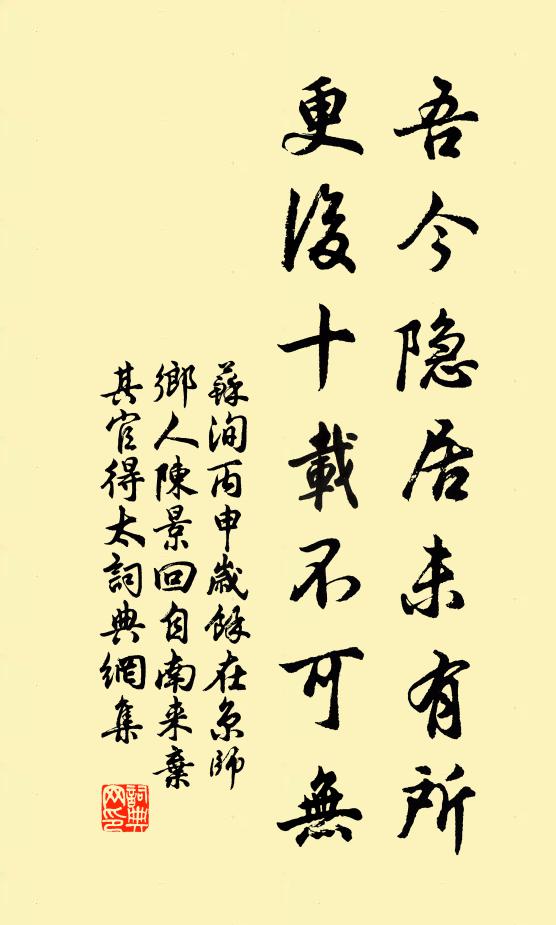 吾今隐居未有所
更後十載不可無
蘇洵丙申歲餘在京師
鄉人陳景回自南来棄
其官得太詞典網集
詞典网印